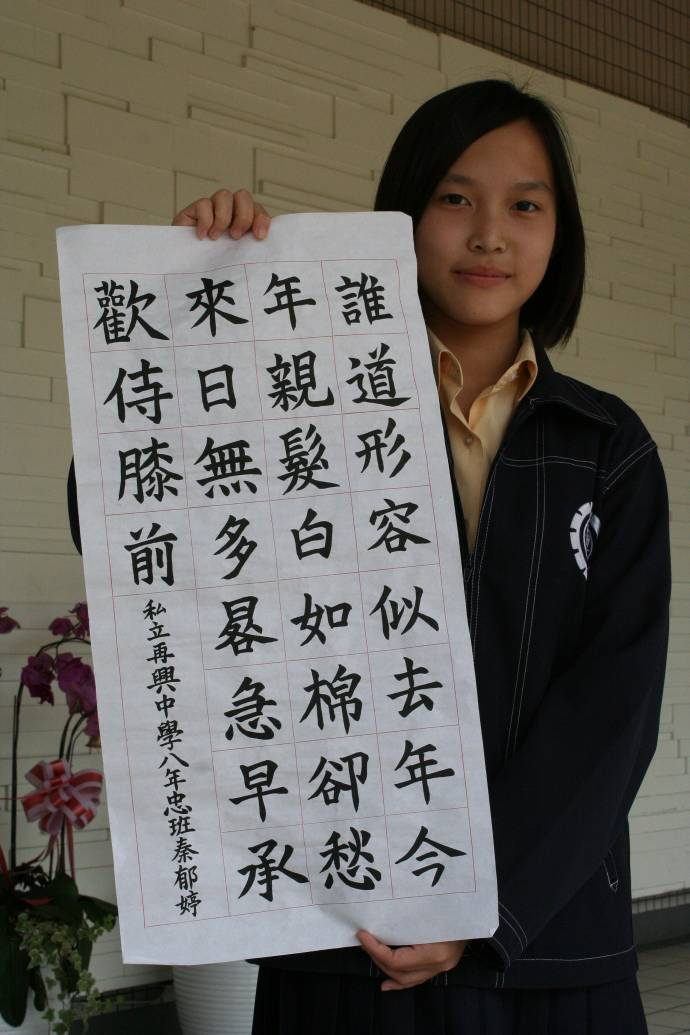 誰道形容似去年今
年親髮白如棉卻愁
來日無多晷急早承
歡侍膝前
私立再興中學八年忠班秦郁婷